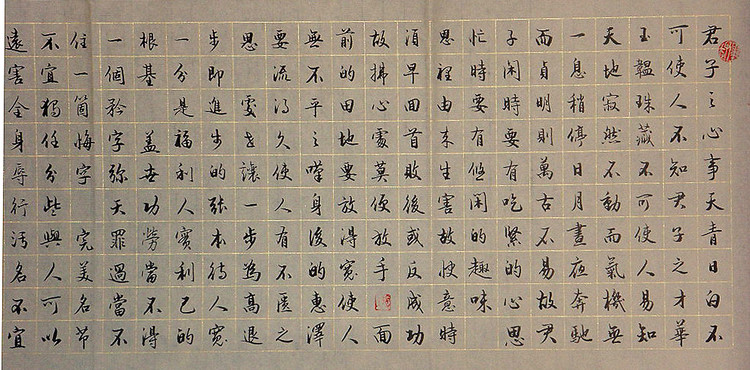 君子之心事天青日白不
可使人不知君子之才華
玉韞珠藏不可使人易知
天地寂然不動而氣機無
一息稍停日月晝夜奔馳
而貞明則萬古不易故君
子閑時要有吃緊的心思
忙時要有悠閑的趣味
思裡由來生害故快意時
須早回首敗後或反成功
故拂心處莫便放手 面
前的田地要放得寬使人
無不平之嘆身後的惠澤
要流得久使人有不匱之
思 處世讓一步為高退
步即進步的張本待人寬
一分是福利人實利己的
根基 蓋世功勞當不得
一個矜字彌天罪過當不
住一箇悔字 完美名節
不宜獨任分些與人可以
遠害全身辱行污名不宜